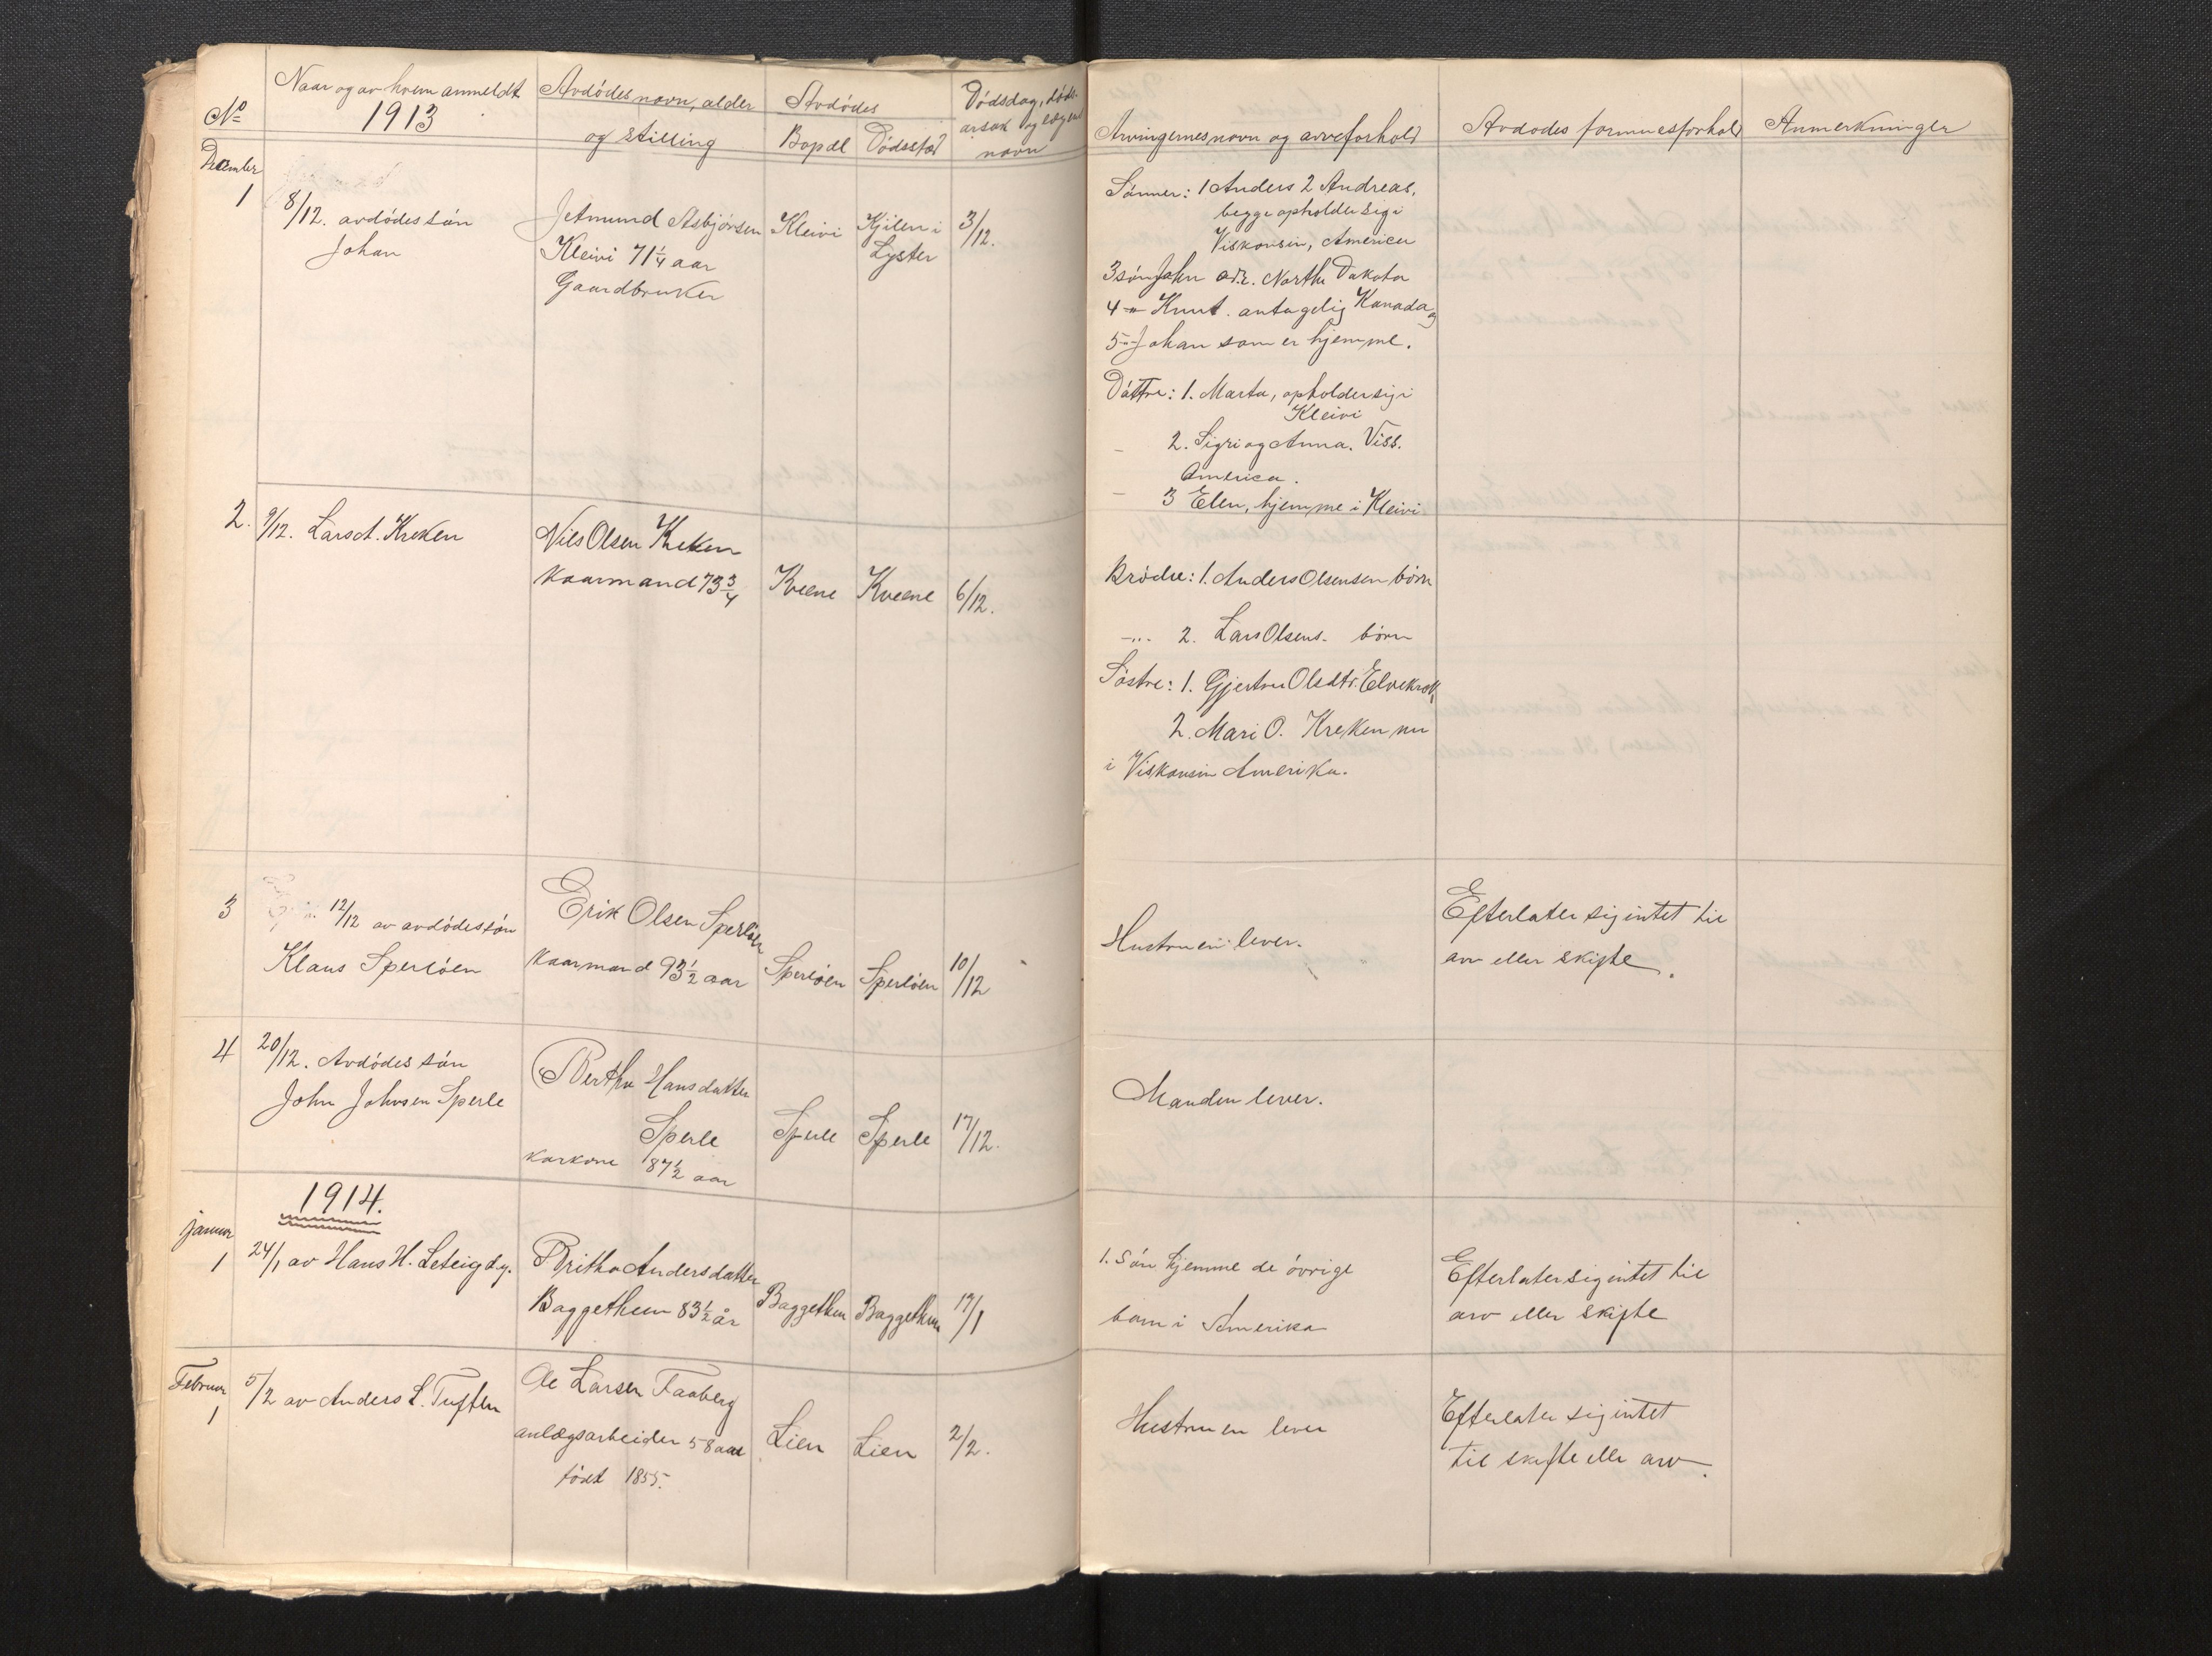 No
Naar og av hvem anmeldt
1913
Avdödes navn, alder
og stilling
Avdödes
Bopæl
Dödssted
Dödsdag, döds-
årsak og læg
navn
Arvingernes navn og arveforhold
Avdödes formuesforhold
Anmerkninger
December
1
8/12. avdödes sön
Johan
Jetmund Asbjörsen
Kleivi 71 1/4 aar
Gaardbruker
Kleivi
Kjilen i
Lyster
3/12.
Sönner: 1 Anders 2 Andreas,
begge opholder sig i
Viskonsin, America
3 sön John adr. North Dakota
4 -"- Knut. antagelig Kanada og
5 -"- Johan som er hjemme.
Döttre: 1. Marta, opholder sig i
Kleivi
2. Sigri og Anna. Viss.
America.
3 Elen, hjemme i Kleivi
2.
9/12. Lars A. Kreken
Nils Olsen Kreken
Kaarmand 73 3/4
Kveene
Kveene
6/12.
Brödre: 1. Anders Olsensen börn
-"- 2. Lars Olsens - börn
Söstre: 1. Gjertru Olsdtr. Elvekrok,
2. Mari O. Kreken nu
i Viskonsin Amerika.
3
12/12 av avdödes sön
Klaus Sperlöen
Erik Olsen Sperlöen
Kaarmand 93 1/2 aar
Sperlöen
Sperlöen
10/12
Hustruen lever.
Efterlater sig intet til
arv eller skifte.
4
20/12. Avdödes sön
John Johnsen Sperle
Bertha Hansdatter
Sperle
Karkone 87 1/2 aar
Sperle
Sperle
17/12.
Manden lever.
1914.
januar
1
24/1 av Hans H. Leteig d.y.
Britha Andersdatter
Baggethun 83 1/2 år
Baggethun
Baggethun
17/1
1. Sön hjemme de övrige
barn i Amerika
Efterlater sig intet til
arv eller skifte
Februar
1
5/2 av Anders L. Tuften
Ole Larsen Faaberg
anlægsarbeider 58 aar
födt 1855.
Lien
Lien
2/2.
Hustruen lever
Efterlater sig intet
til skifte eller arv.